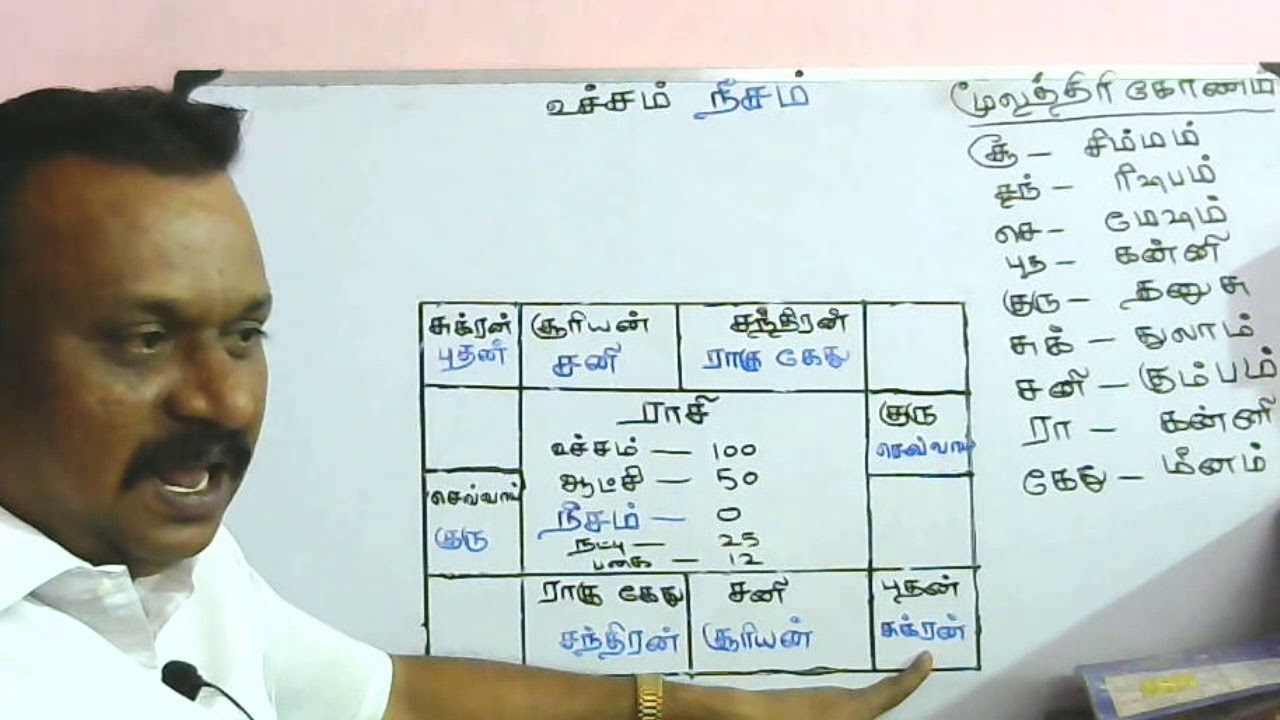 உச்சம் நீசம்
மூலத்திரிகோணம்
சூ – சிம்மம்
சந் – ரிஷபம்
செ – மேஷம்
புத – கன்னி
குரு – தனுசு
சுக் – துலாம்
சனி – கும்பம்
ரா – கன்னி
கேது – மீனம்
சுக்ரன்
புதன்
சூரியன்
சனி
சந்திரன்
ராகு கேது
ராசி
உச்சம் – 100
ஆட்சி – 50
நீசம் – 0
நட்பு – 25
பகை – 12
குரு
செவ்வாய்
செவ்வாய்
குரு
ராகு கேது
சந்திரன்
சனி
சூரியன்
புதன்
சுக்ரன்